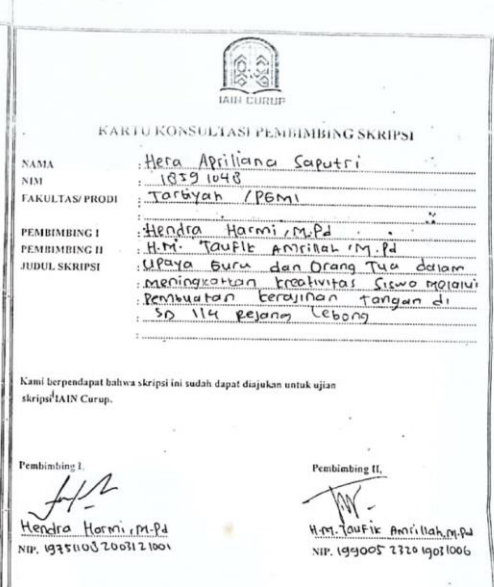 IAIN CURUP
KARTU KONSULTASI PEMBIMBING SKRIPSI
NAMA : Hera Apriliana Saputri
NIM : 18591048
FAKULTAS/PRODI : Tarbiyah /PGMI
:
PEMBIMBING I : Hendra Harmi, M.Pd
PEMBIMBING II : H.M. Taufik Amrillah, M.Pd
JUDUL SKRIPSI : Upaya Guru dan Orang Tua dalam
: meningkatkan kreativitas Siswa melalui
: Pembuatan kerajinan tangan di
: SD 114 Rejang Lebong
:
Kami berpendapat bahwa skripsi ini sudah dapat diajukan untuk ujian
skripsi IAIN Curup.
Pembimbing I,
Hendra Harmi, M.Pd
NIP. 197511082003121001
Pembimbing II,
H.M. Taufik Amrillah, M.Pd
NIP. 199005 2320 19031006